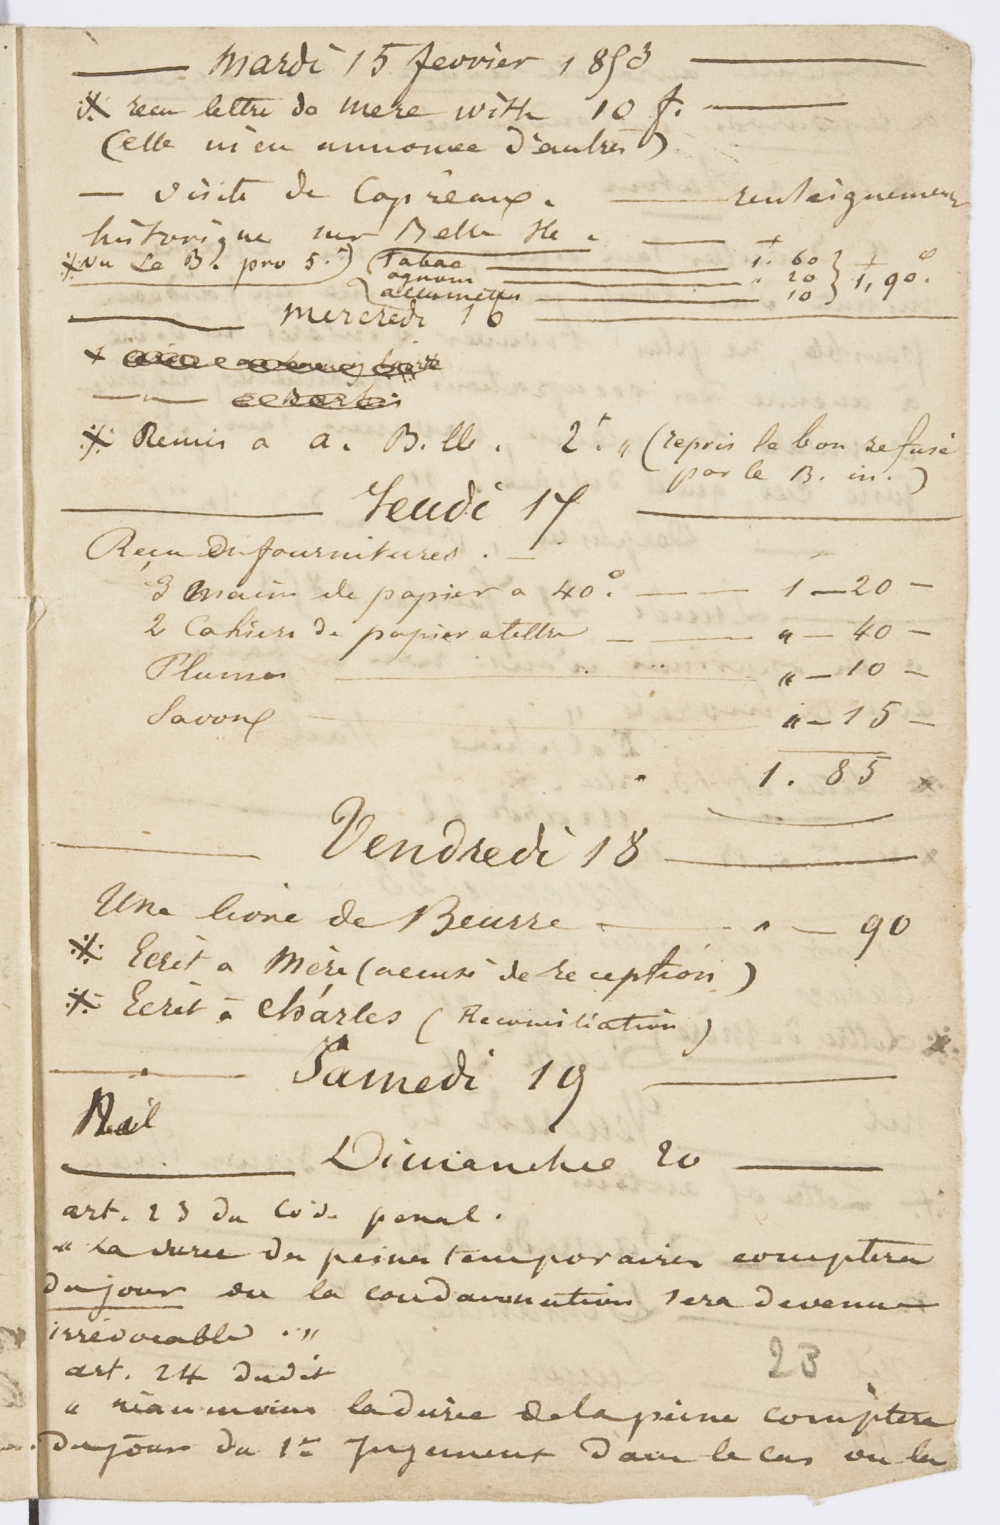 Mardi 15 fevrier 1853
recu lettre de mere with 10 f.
(elle m'en annonce d'autres)
— visite de Capréaux. — renseignements
historique sur Belle Ile. —
Vu Le B. pro 5.) Tabac — 1. 60
20 } 1,90c.
allumettes — 10
Mercredi 16
Remis a a. B.lle. 2f. „ (repris le bon refusé
par le B. in.)
Jeudi 17
Reçu en fournitures. —
3 mains de papier a 40c. — 1 — 20 —
2 Cahiers de papier a lettre — „ — 40 —
Plumes — „ — 10 —
Savons — „ — 15 —
1. 85
Vendredi 18
Une livre de Beurre — „ — 90
Ecrit a Mère (accusé de reception)
Ecrit à Charles (Reconciliation)
Samedi 19
Dimanche 20
art. 23 du Code penal.
„ La duree des peines temporaires comptera
du jour ou la condamnation sera devenue
irrévocable. „
art. 24 dudit
„ néanmoins la durée de la peine comptera
du jour du 1er Jugement dans le cas ou le
23